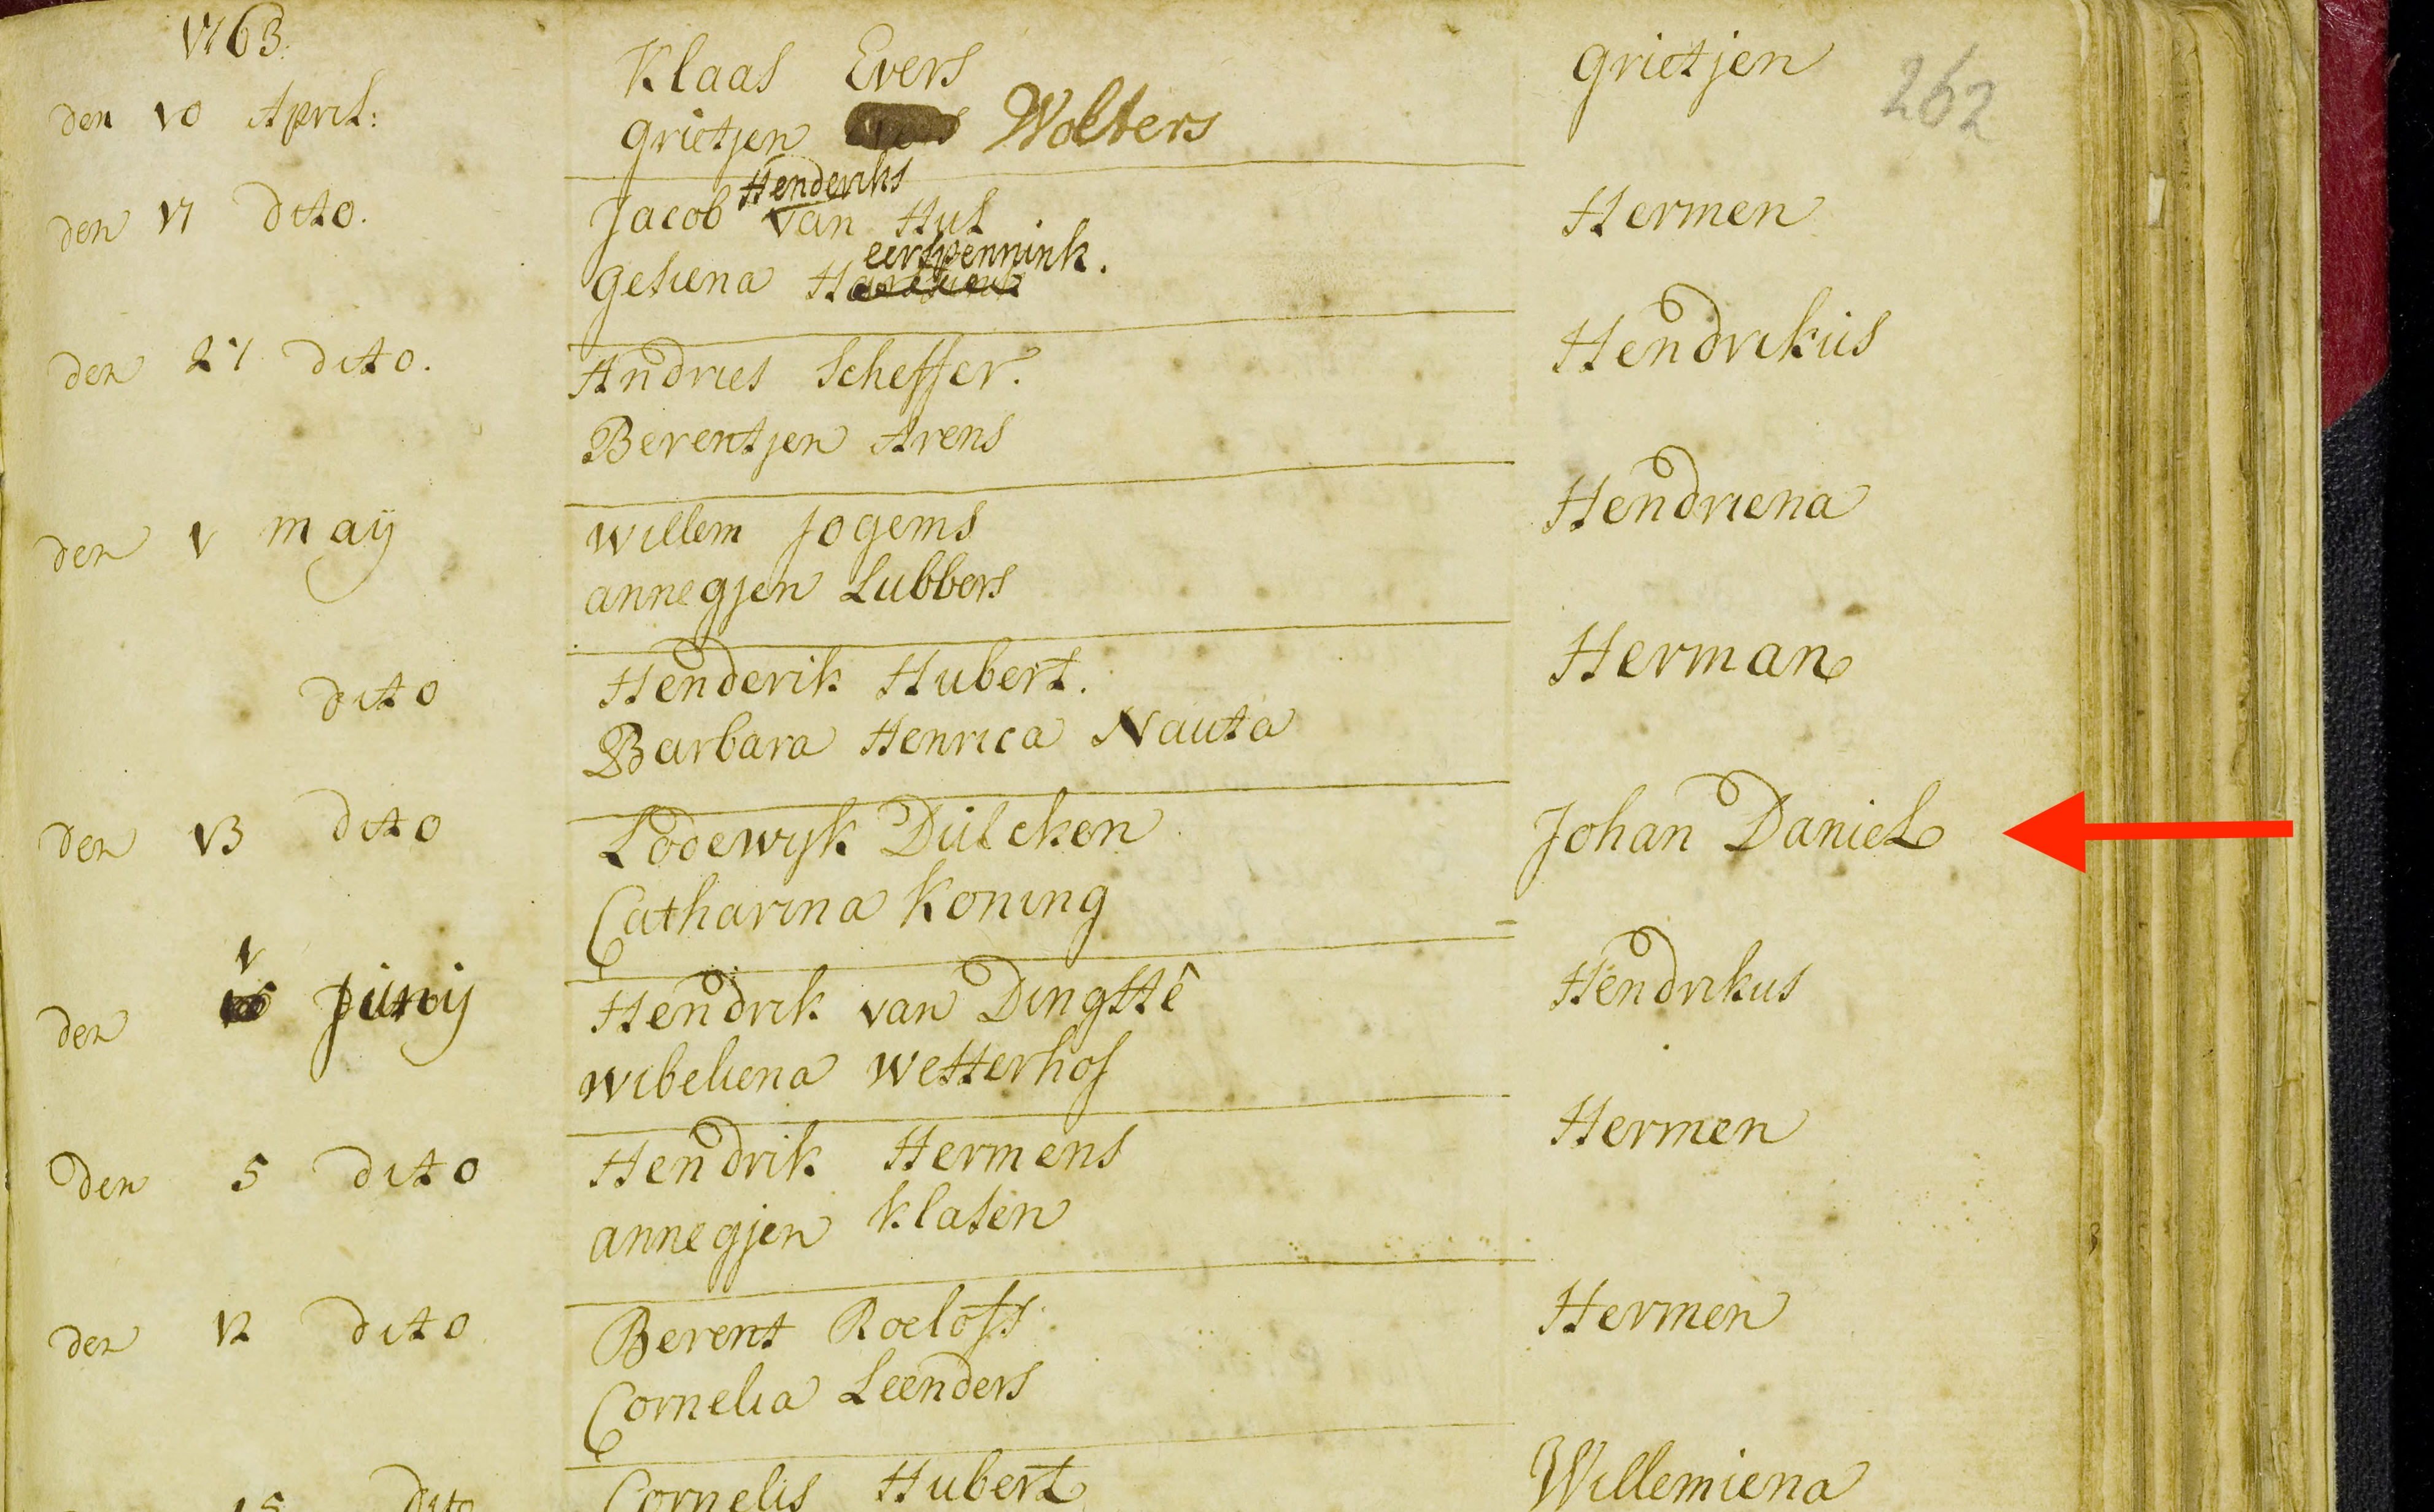 1763.
Klaas Evers
grietjen
262
den 10 April:
grietjen Wolters
Henderiks
den 17 dito.
Jacob van Hul
Hermen
eertpennink.
Gesiena
den 27 dito.
Andries Scheffer.
Hendrikus
Berentjen Arens
den 1 maij
willem Jogems
Hendriena
annegjen Lubbers
dito
Henderik Hubert.
Herman
Barbara Henrica Nauta
den 13 dito
Lodewijk Dülcken
Johan Daniel
Catharina Koning
den 1 Junij
Hendrik van Dingstê
Hendrikus
wibeliena Westerhof
den 5 dito
Hendrik Hermens
Hermen
annegjen Klasen
den 12 dito
Berent Roelofs.
Hermen
Cornelia Leenders
15 dito
Cornelis Hubert
Willemiena